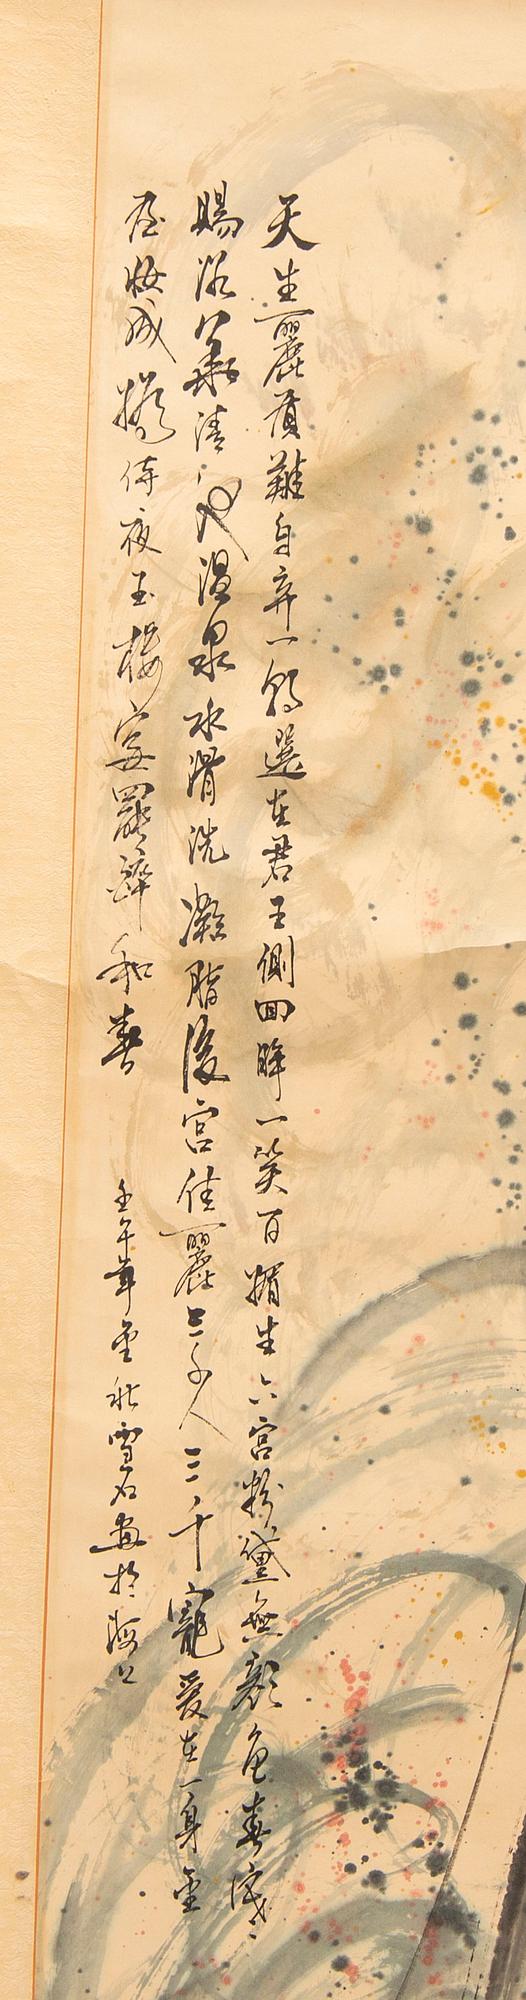 天生麗質難自弃一朝選在君王側回眸一笑百媚生六宮粉黛無顏色春寒
賜浴華清池温泉水滑洗凝脂後宮佳麗三千人三千寵愛在一身金
屋妝成嬌侍夜玉樓宴罷醉和春
壬午年金秋雪石畫於海上